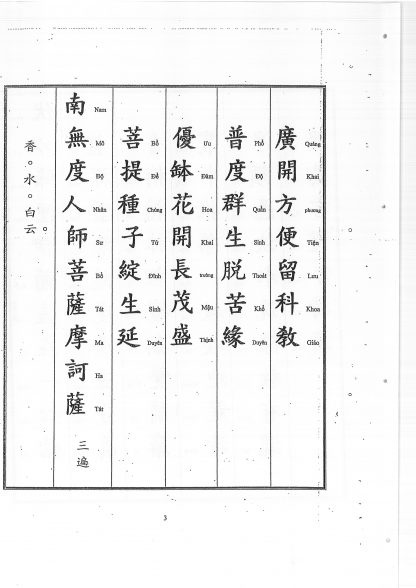 廣開方便留科教
Quảng Khai phương Tiện Lưu Khoa Giáo
普度群生脱苦緣
Phổ Độ Quần Sinh Thoát Khổ Duyên
優鉢花開長茂盛
Ưu Đàm Hoa Khai trưởng Mậu Thịnh
菩提種子綻生延
Bồ Đề Chủng Tử Đĩnh Sinh Duyên
南無度人師菩薩摩訶薩 三遍
Nam Mô Độ Nhân Sư Bồ Tát Ma Ha Tát
香。水。白云。
3